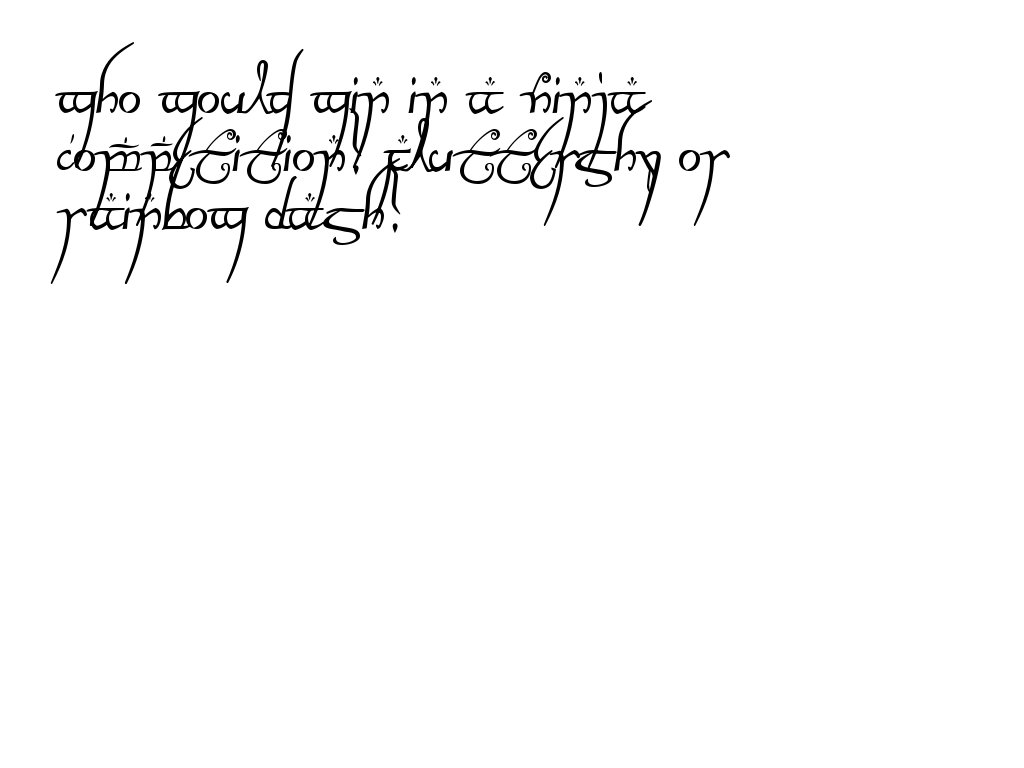 who would win in a ninja
competition? fluttershy or
rainbow dash?